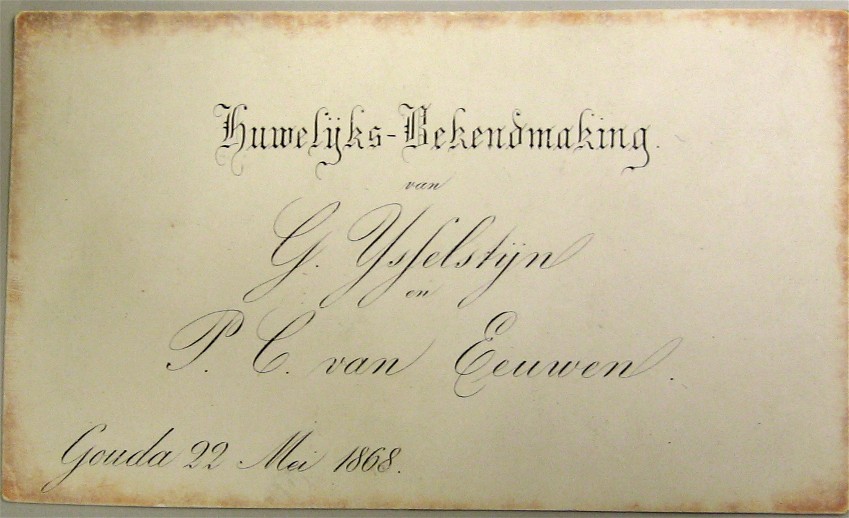 Huwelijks-Bekendmaking.
van
G. IJsselstijn
en
P. C. van Eeuwen.
Gouda 22 Mei 1868.